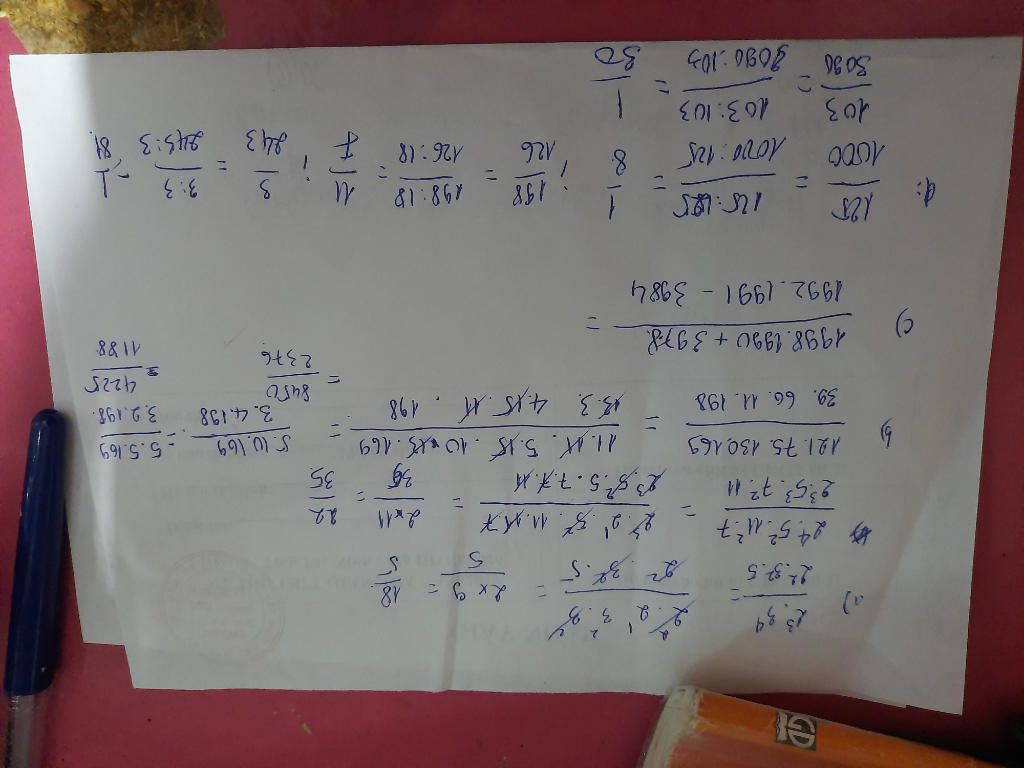 a) 2³.3⁴/2².3².5 = 2².2¹.3².3²/2².3².5 = 2x9/5 = 18/5
2⁴.5².11².7/2³.5³.7².11 = 2³.2¹.5².11.11.7/2³.5².5.7.7.11 = 2x11/35 = 22/35
b) 121.75.130.169/39.60.11.198 = 11.11.5.15.10.13.169/13.3.4.15.11.198 = 5.10.169/3.4.198 = 5.5.169/3.2.198
= 8450/2376 = 4225/1188
c) 1998.1990 + 3978/1992.1991 - 3984 =
d: 125/1000 = 125:125/1000:125 = 1/8 ; 198/126 = 198:18/126:18 = 11/7 ; 3/243 = 3:3/243:3 = 1/81
103/3090 = 103:103/3090:103 = 1/30
GD